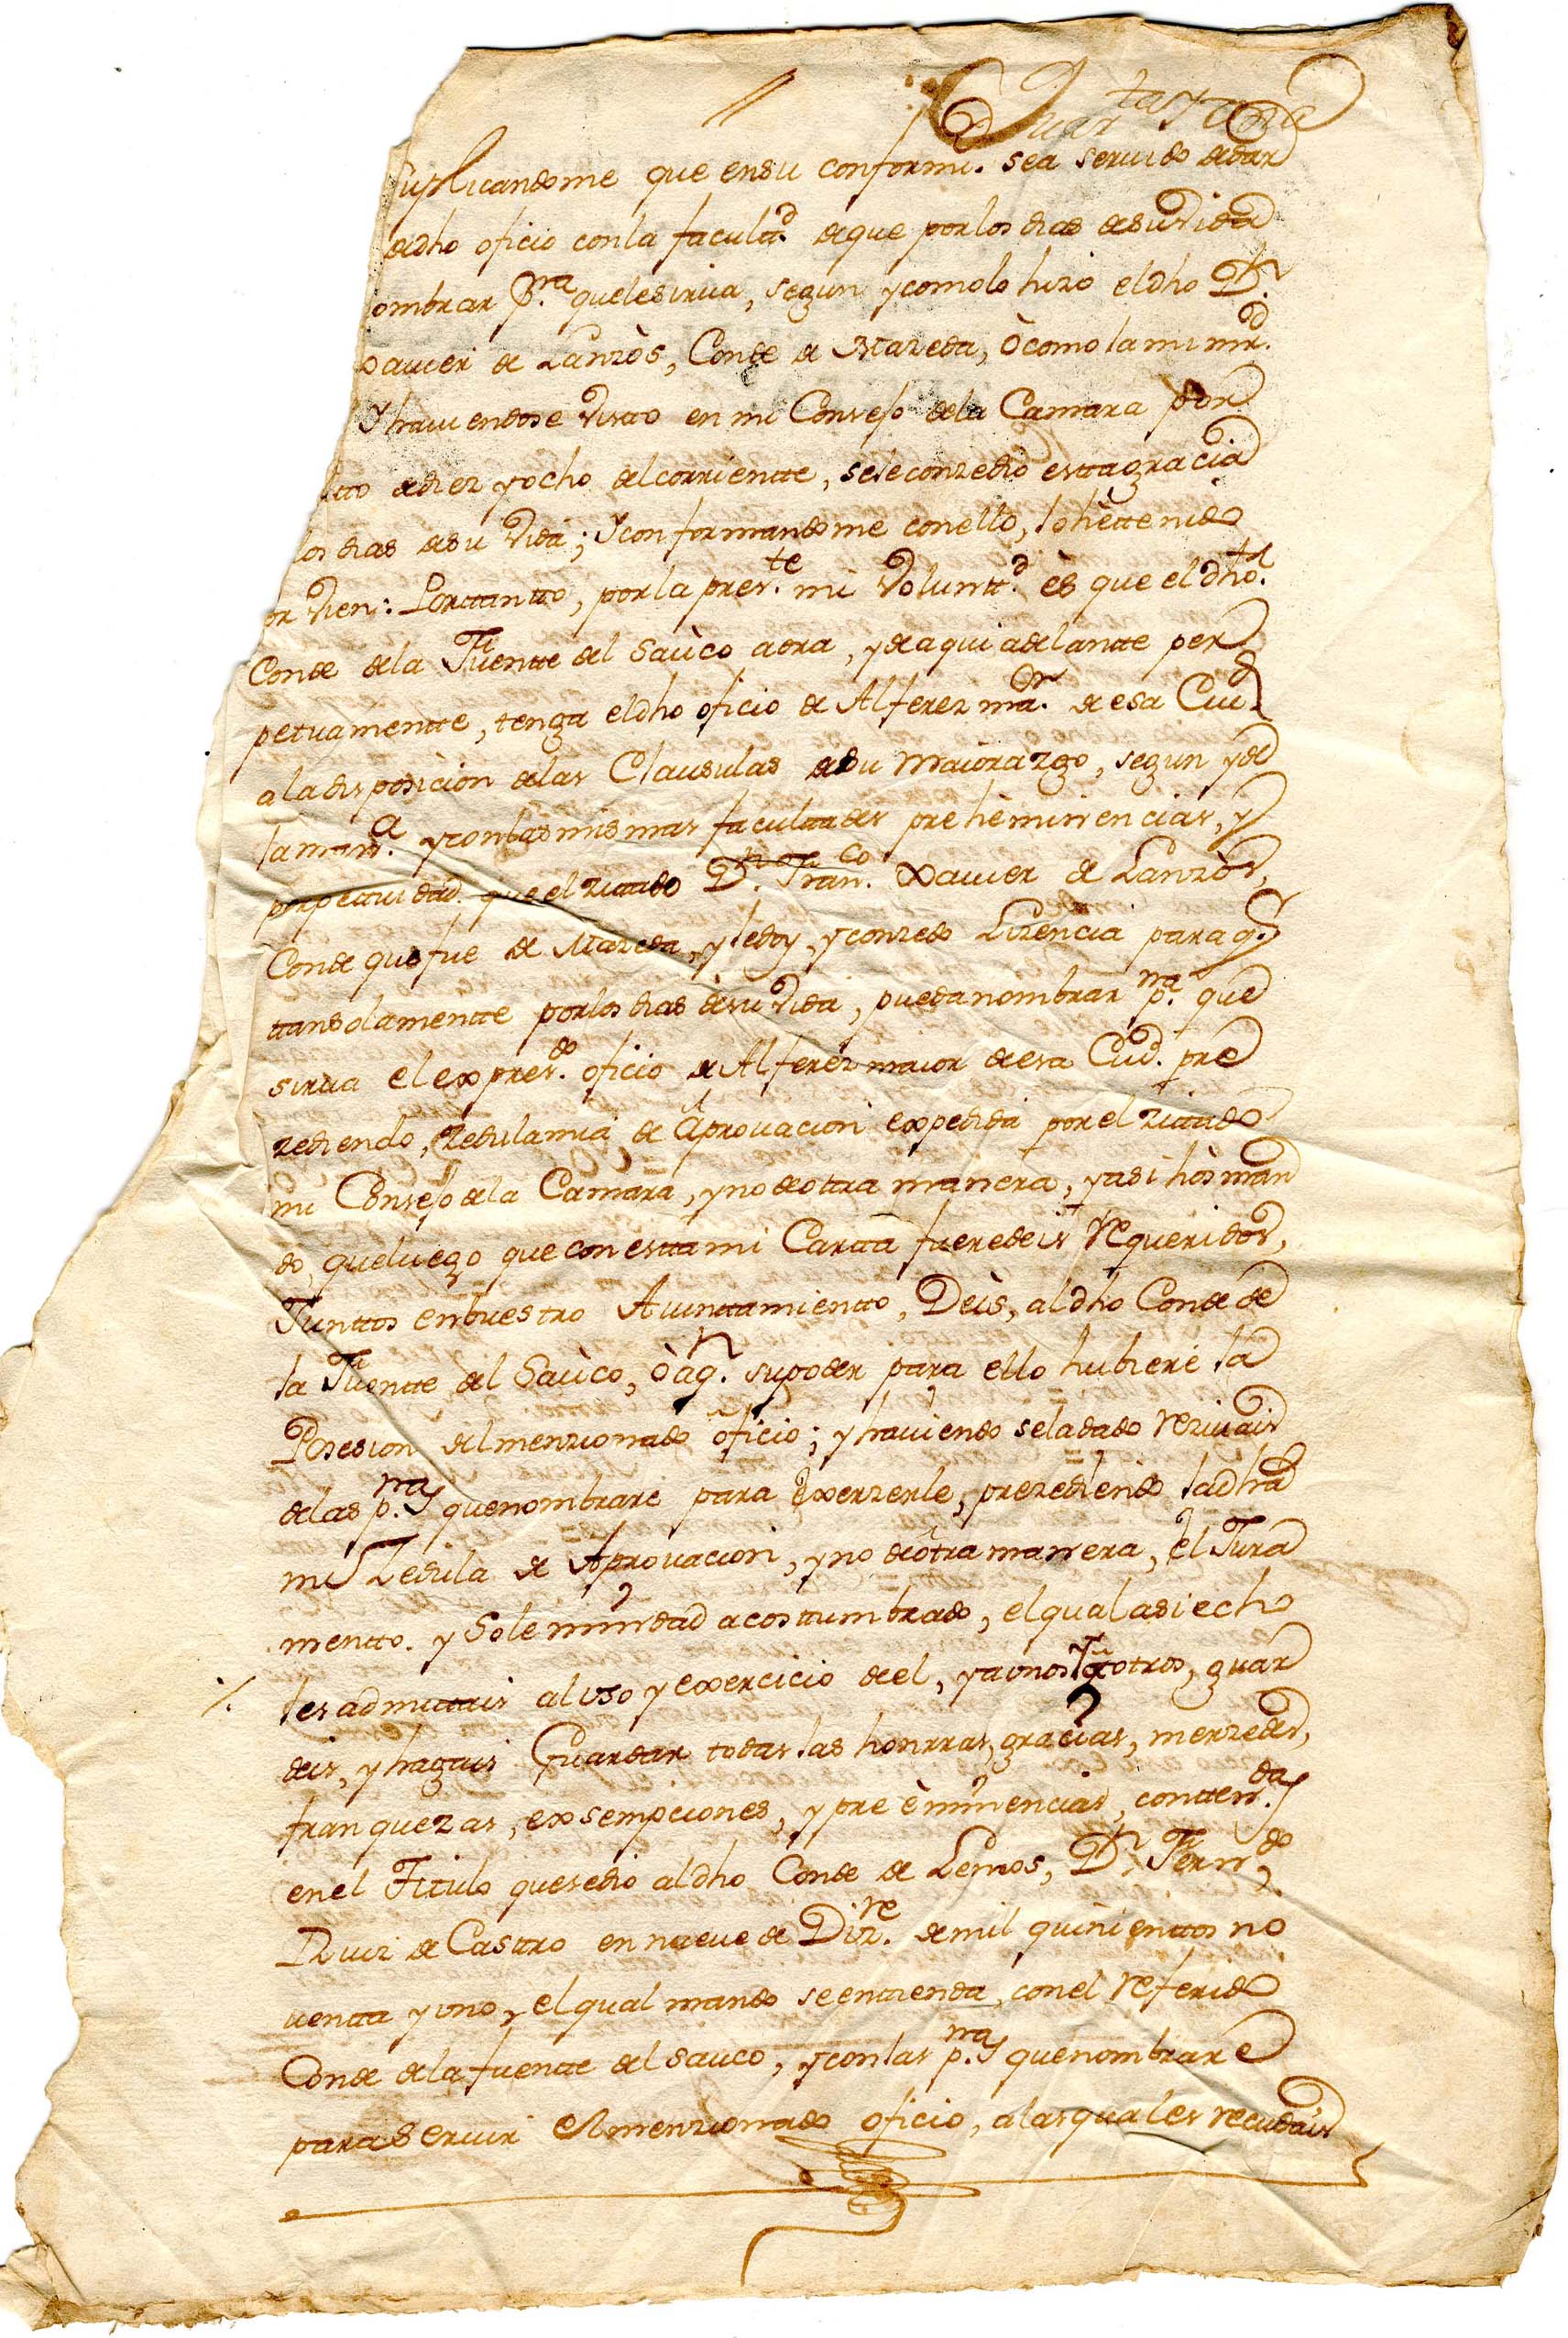 suplicandome que ensu conformi. sea seruido dedar
dedho oficio conla facultd. deque porlos dias desuvida
ombrar p.na quelesirua, segun ycomolo hizo eldho Dn.
Xauier de Lanzòs, Conde de Mazeda, òcomo lami mrd.
Y hauiendose visto en mi Consejo dela Camara por
dediez yocho delcorriente, sele conzedio estta gracia
los dias desu vida; Yconformandome conello, lo hè ttenido
or vien: Porttantto, porla pres.te mi Volunttd. ès que eldho.
Conde dela Fuentte del Saùco aora, ydeaqui adelantte per
petuamentte, tenga eldho oficio de Alferez mar. de esa Ciud.
ala disposicion delas Clausulas desu maiorazgo, segun yde
la man.a yconlasmismas facultades prehèminencias, y
perpettuidad que el zittado Dn. Fran.co Xauier de Lanzòs,
Conde que fue de Mazeda, yledoy, yconzedo Lizencia para q.
ttansolamentte porlos dias desu vida, pueda nombrar p.na que
sirua el expres.do oficio de Alferez maior deesa Ciud. pre
zediendo, Zedulamia de Aprouacion expedida porel zittado
mi Consejo dela Camara, yno deotra manera, yasi hòs man
do, queluego que con estta mi Cartta fueredeis requeridos,
Junttos enbuestro Aiunttamientto, Deis, aldho Conde de
la Fuentte del Saùco, òaqn. supoder para ello hubiere la
Posesion delmenzionado oficio; y hauiendo seladado reziuais
delas p.nas quenombrare para exerzerle, prezediendo ladha
mi Zedula de Aprouacion, yno deòtra manera, el Jura
mentto. y Solemnidad acosttumbrado, elqual asi echo
les admittais aluso yexercicio deel, yaunos yaotros, guar
deis, yhagais Guardar todas las honrras, gracias, merzedes,
franquezas, exsempciones, ypreèminencias, contten.das
enel Titulo quesedio aldho Conde de Lemos, Dn. Fern.do
Ruiz de Casttro en nueue de Diz.re demil quinienttos no
uentta yuno, elqual mando seentienda, conel referido
Conde dela fuentte del sauco, yconlas p.nas quenombrare
paraseruir elmenzionado oficio, alasquales recudais